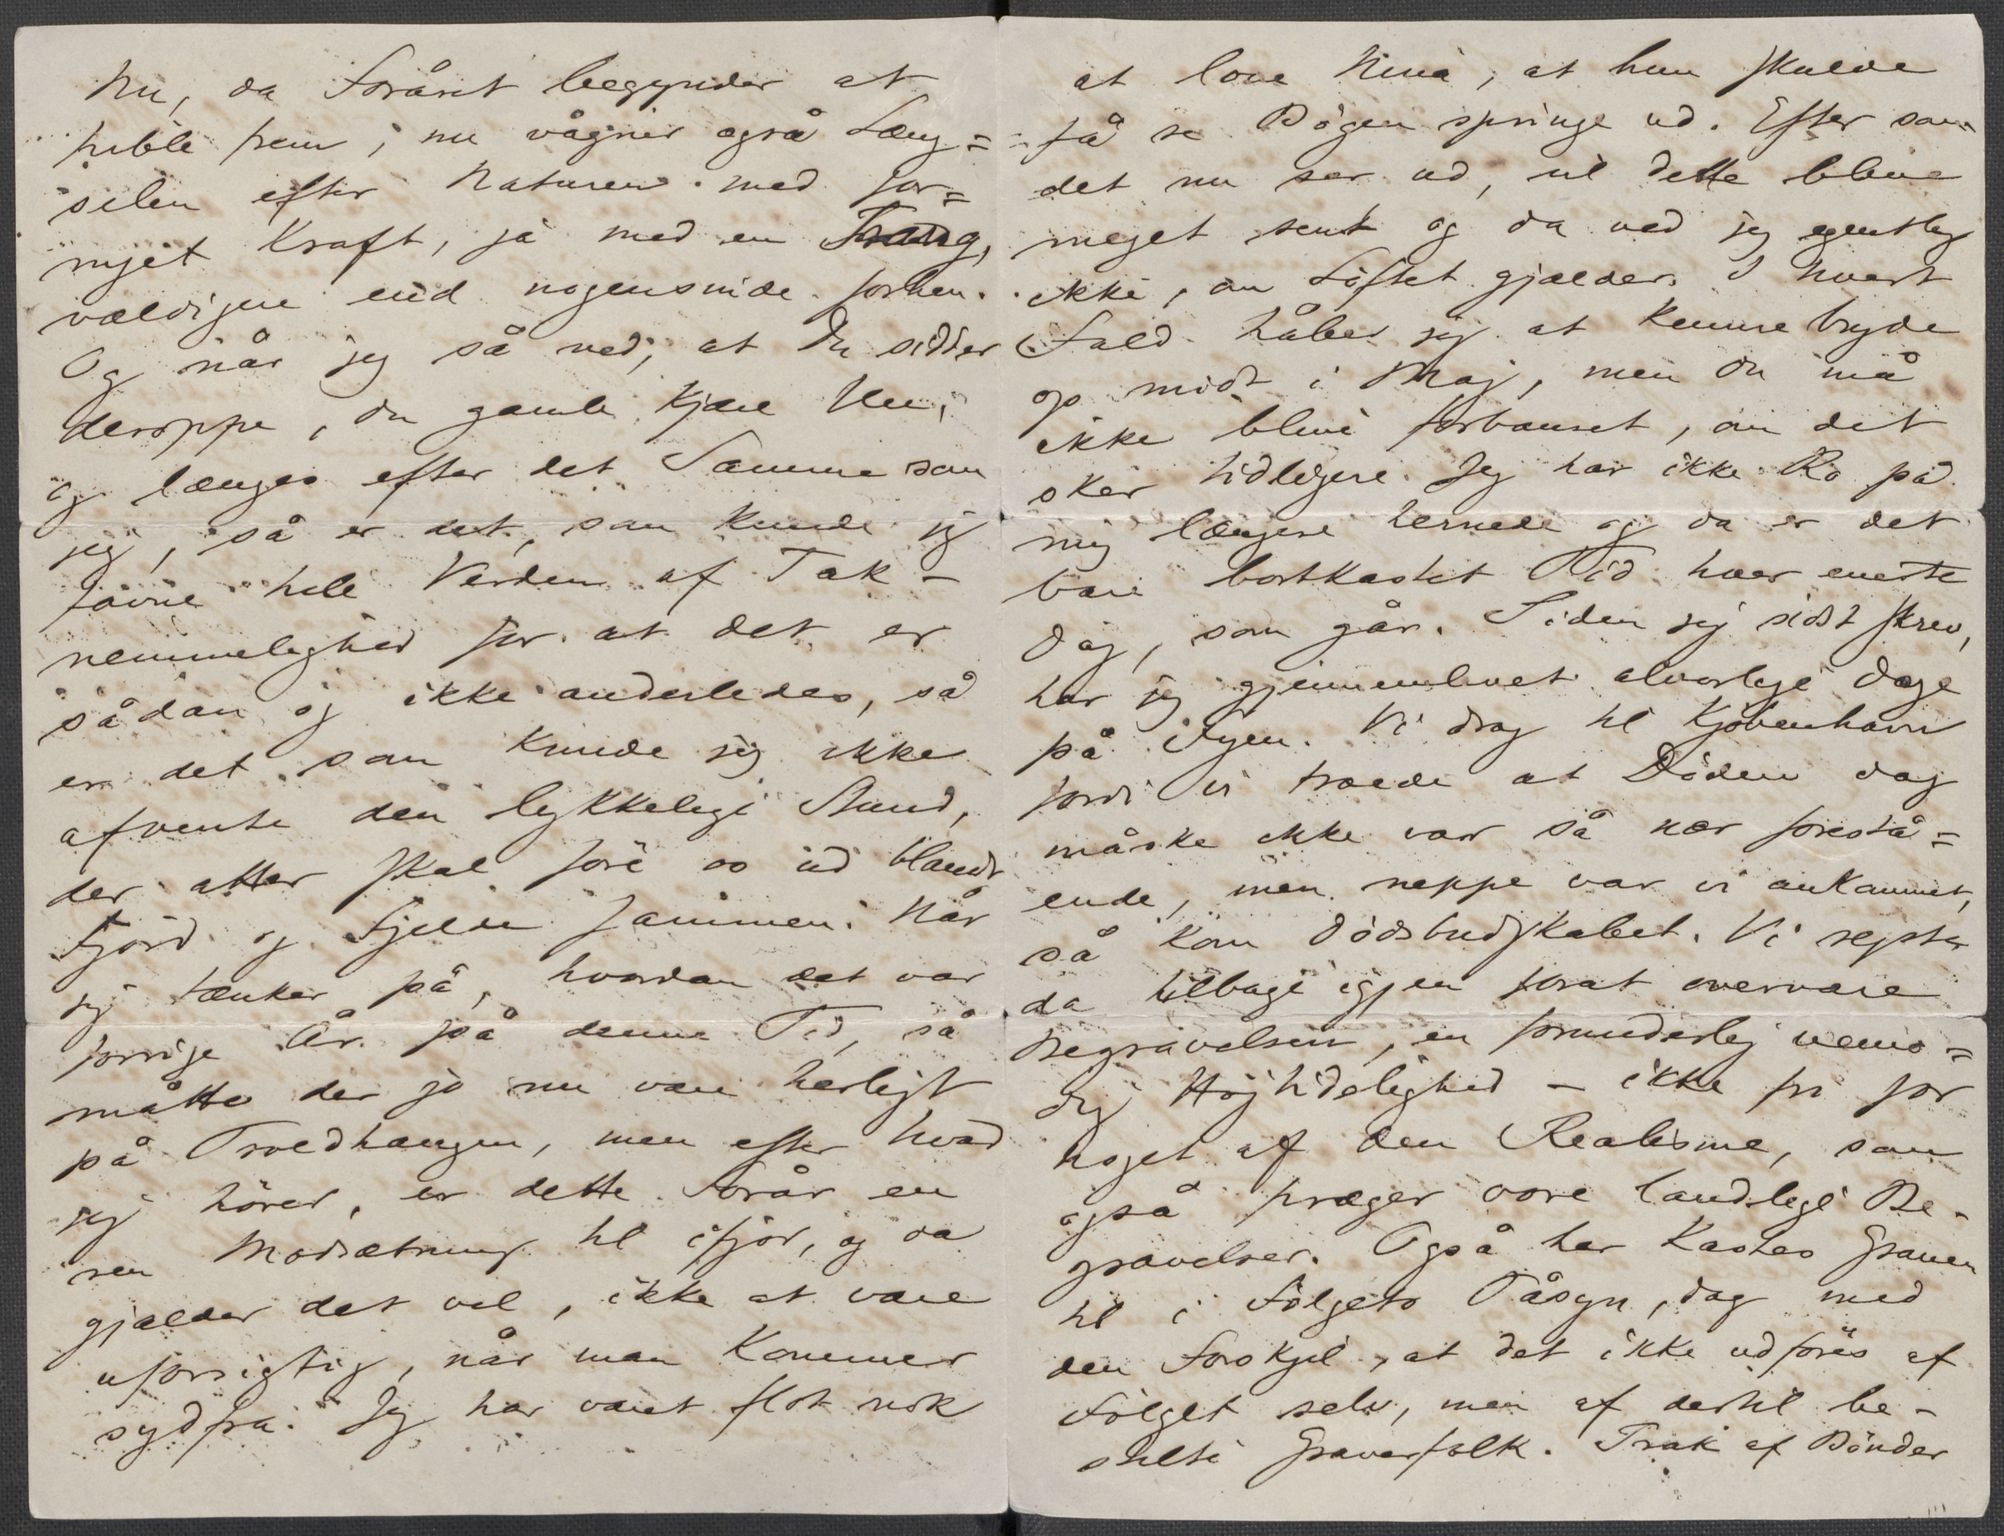 Nu, da Foråret begynder at
pible frem, nu vågner også Læng=
selen efter Naturen med for=
nyet Kraft, ja med en Trang,
vældigere end nogensinde forhen.
Og når jeg så ved, at Du sidder
deroppe, du gamle kjære Ven,
og længes efter det Samme som
jeg, så er det, som kunde jeg
favne hele Verden af Tak-
nemmelighed for at det er
sådan og ikke anderledes, så
er det som kunde jeg ikke
afvente den lykkelige Stund,
der atter skal føre os ud blandt
Fjord og Fjelde sammen. Når
jeg tænker på, hvordan det var
forrige År på denne Tid, så
måtte der jo nu være herligt
på Troldhaugen, men efter hvad
jeg hører, er dette Forår en
ren Modsætning til ifjor, og da
gjælder det vel, ikke at være
uforsigtig, når man kommer
sydfra. Jeg har været flot nok
at love Nina, at hun skulde
få se Bøgen springe ud. Efter som
det nu ser ud, vil dette blive
meget sent og da ved jeg egentlig
ikke, om Løftet gjælder. I hvert
Fald håber jeg at kunne bryde
op midt i Maj, men Du må
ikke blive forbauset, om det
sker tidligere. Jeg har ikke Ro på
mig længere hernede og da er det
bare bortkastet Tid hver eneste
Dag, som går. Siden jeg sidst skrev,
har jeg gjennemlevet alvorlige Dage
på Fyen. Vi drog til Kjøbenhavn
fordi vi troede at Døden dog
måske ikke var så nær forestå=
ende, men neppe var vi ankommet,
så kom Dødsbudskabet. Vi rejste
da tilbage igjen forat overvære
Begravelsen, en forunderlig vemo=
dig Højtidelighed - ikke fri for
noget af den Realisme, som
også præger vore landlige Be-
gravelser. Også her kastes Graven
til i Følgets Påsyn, dog med
den Forskjel, at det ikke udføres af
Følget selv, men af dertil be-
stilte Graverfolk. Trak af Bønder